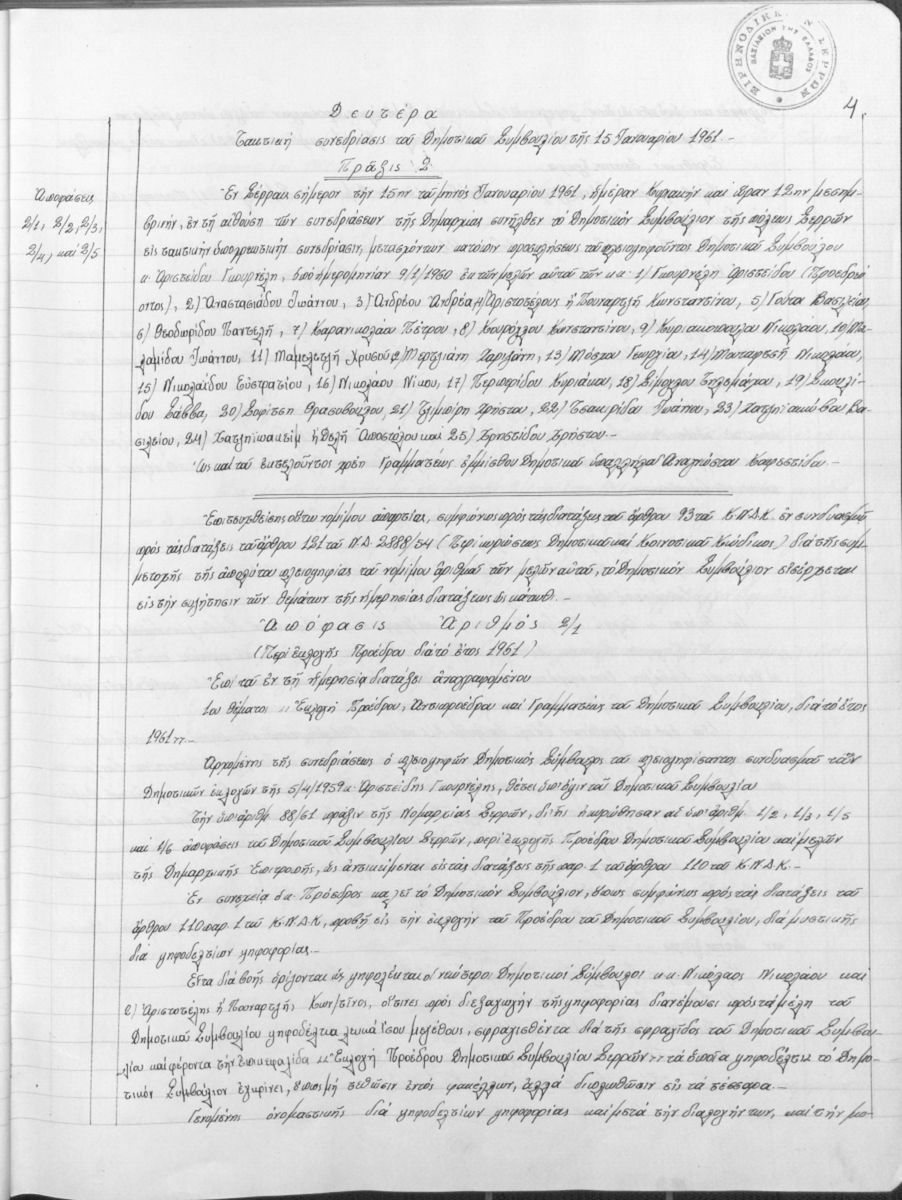 ΕΙΡΗΝΟΔΙΚΕΙΟΝ ΣΕΡΡΩΝ
ΒΑΣΙΛΕΙΟΝ ΤΗΣ ΕΛΛΑΔΟΣ
4.
Δευτέρα
Τακτική συνεδρίασις τοῦ Δημοτικοῦ Συμβουλίου τῆς 15 Ἰανουαρίου 1961.-
Πρᾶξις 2
Ἀποφάσεις
2/1, 2/2, 2/3,
2/4, καί 2/5
Ἐν Σέρραις σήμερον τήν 15ην τοῦ μηνός Ἰανουαρίου 1961, ἡμέραν Κυριακήν καί ὥραν 12ην μεσημ-
βρινήν, ἐν τῇ αἰθούσῃ τῶν συνεδριάσεων τῆς Δημαρχίας συνῆλθεν τό Δημοτικόν Συμβούλιον τῆς πόλεως Σερρῶν
εἰς τακτικήν ὑποχρεωτικήν συνεδρίασιν, μετασχόντων κατόπιν προσκλήσεως τοῦ πλειοψηφοῦντος Δημοτικοῦ Συμβούλου
κ. Ἀριστείδου Γκουρτέλη, ὑπό ἡμερομηνίαν 9/1/1960 ἐκ τῶν μελῶν αὐτοῦ τῶν κ.κ. 1) Γκουρτέλη Ἀριστείδου (Προεδρεύ
οντος), 2) Ἀναστασιάδου Ἰωάννου, 3) Ἀνδρέου Ἀνδρέα, 4) Ἀριστοτέλους ἤ Πουναρτζῆ Κωνσταντίνου, 5) Γούτα Βασιλείου,
6) Θεοδωρίδου Παντελῆ, 7) Καρανικολάου Πέτρου, 8) Κωνσταντίνου, 9) Κυριακοπούλου Νικολάου, 10) Μα-
λαμίδου Ἰωάννου, 11) Χρυσοῦ, 12) 13) Μόσχου Γεωργίου, 14) Νικολάου,
15) Νικολαΐδου Εὐστρατίου, 16) Νικολάου Νίκου, 17) Κυριάκου, 18) Τηλεμάχου, 19) Σκουλί-
δου Σάββα, 20) Θρασυβούλου, 21) Χρήστου, 22) Τσακιρίδου Ἰωάννου, 23) Χατζηϊακώβου Βα-
σιλείου, 24) ἤ Δελῆ Ἀποστόλου καί 25) Χρηστίδου Χρήστου.-
Ὡς καί τοῦ ἐκτελοῦντος χρέη Γραμματέως ἐμμίσθου Δημοτικοῦ ὑπαλλήλου Ἀναγνώστου Καφεστίδου.-
Ἐπιτευχθείσης οὕτω νομίμου ἀπαρτίας, συμφώνως πρός τάς διατάξεις τοῦ ἄρθρου 93 τοῦ Κ.Ν.Δ.Κ. ἐν συνδυασμῷ
πρός τάς διατάξεις τοῦ ἄρθρου 121 τοῦ Ν.Δ. 2888/54 (Περί κυρώσεως Δημοτικοῦ καί Κοινοτικοῦ Κώδικος) διά τῆς συμ-
μετοχῆς τῆς ἀπολύτου πλειοψηφίας τοῦ νομίμου ἀριθμοῦ τῶν μελῶν αὐτοῦ, τό Δημοτικόν Συμβούλιον εἰσέρχεται
εἰς τήν συζήτησιν τῶν θεμάτων τῆς ἡμερησίας διατάξεως ὡς κάτωθι.-
Ἀπόφασις Ἀριθμός 2/1
(Περί ἐκλογῆς Προέδρου διά τό ἔτος 1961)
Ἐπί τοῦ ἐν τῇ ἡμερησίᾳ διατάξει ἀναγραφομένου
1ου θέματος "Ἐκλογή Προέδρου, Ἀντιπροέδρου καί Γραμματέως τοῦ Δημοτικοῦ Συμβουλίου, διά τό ἔτος
1961".-
Ἀρχομένης τῆς συνεδριάσεως ὁ πλειοψηφῶν Δημοτικός Σύμβουλος τοῦ πλειοψηφίσαντος συνδυασμοῦ τῶν
Δημοτικῶν ἐκλογῶν τῆς 5/4/1959 κ. Ἀριστείδης Γκουρτέλης, θέτει ὑπ' ὄψιν τοῦ Δημοτικοῦ Συμβουλίου
Τήν ὑπ' ἀριθμ. 88/61 πρᾶξιν τῆς Νομαρχίας Σερρῶν, δι' ἧς ἠκυρώθησαν αἱ ὑπ' ἀριθμ. 1/2, 1/3, 1/5
καί 1/6 ἀποφάσεις τοῦ Δημοτικοῦ Συμβουλίου Σερρῶν, περί ἐκλογῆς Προέδρου Δημοτικοῦ Συμβουλίου καί μελῶν
τῆς Δημαρχικῆς Ἐπιτροπῆς, ὡς ἀντικείμεναι εἰς τάς διατάξεις τῆς παρ. 1 τοῦ ἄρθρου 110 τοῦ Κ.Ν.Δ.Κ.-
Ἐν συνεχείᾳ ὁ κ. Πρόεδρος καλεῖ τό Δημοτικόν Συμβούλιον, ὅπως συμφώνως πρός τάς διατάξεις τοῦ
ἄρθρου 110 παρ. 1 τοῦ Κ.Ν.Δ.Κ, προβῇ εἰς τήν ἐκλογήν τοῦ Προέδρου τοῦ Δημοτικοῦ Συμβουλίου, διά μυστικῆς
διά ψηφοδελτίων ψηφοφορίας.-
Εἶτα διά βοῆς ὁρίζονται ὡς ψηφολέκται οἱ νεώτεροι Δημοτικοί Σύμβουλοι κ.κ. Νικόλαος Νικολάου καί
2) Ἀριστοτέλης ἤ Πουναρτζῆς Κων/τῖνος, οἵτινες πρός διεξαγωγήν τῆς ψηφοφορίας διανέμουσι πρός τά μέλη τοῦ
Δημοτικοῦ Συμβουλίου ψηφοδέλτια λευκά ἴσου μεγέθους, σφραγισθέντα διά τῆς σφραγῖδος τοῦ Δημοτικοῦ Συμβου-
λίου καί φέροντα τήν ἐπικεφαλίδα "Ἐκλογή Προέδρου Δημοτικοῦ Συμβουλίου Σερρῶν" τά ὁποῖα ψηφοδέλτια τό Δημο-
τικόν Συμβούλιον ἐγκρίνει, ὅπως μή τεθῶσιν ἐντός φακέλλων, ἀλλά διπλωθῶσιν εἰς τά τέσσαρα.-
Γενομένης ὀνομαστικῆς διά ψηφοδελτίων ψηφοφορίας καί μετά τήν διαλογήν των, καί τήν μο-